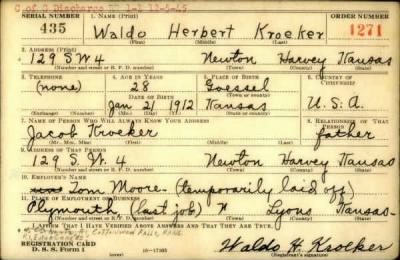 C of G Discharge 12-5-45
SERIAL NUMBER 1. NAME (Print) ORDER NUMBER
435 Waldo Herbert Kroeker 1271
(First) (Middle) (Last)
2. ADDRESS (Print)
129 S W 4 Newton Harvey Kansas
(Number and street or R. F. D. number) (Town) (County) (State)
3. TELEPHONE 4. AGE IN YEARS 5. PLACE OF BIRTH 6. COUNTRY OF CITIZENSHIP
(none) 28 Goessel
DATE OF BIRTH (Town or county)
Jan 21 1912 Kansas U. S. A.
(Exchange) (Number) (Mo.) (Day) (Yr.) (State or country)
7. NAME OF PERSON WHO WILL ALWAYS KNOW YOUR ADDRESS 8. RELATIONSHIP OF THAT PERSON
Jacob Kroeker father
(Mr., Mrs., Miss) (First) (Middle) (Last)
9. ADDRESS OF THAT PERSON
129 S. W. 4 Newton Harvey Kansas
(Number and street or R. F. D. number) (Town) (County) (State)
10. EMPLOYER'S NAME
Tom Moore - (temporarily laid off)
11. PLACE OF EMPLOYMENT OR BUSINESS
Plymouth (last job) N Lyons Kansas
(Number and street or R. F. D. number) (Town) (County) (State)
I AFFIRM THAT I HAVE VERIFIED ABOVE ANSWERS AND THAT THEY ARE TRUE.
REGISTRATION CARD
D. S. S. Form 1 16-17105 Waldo H. Kroeker